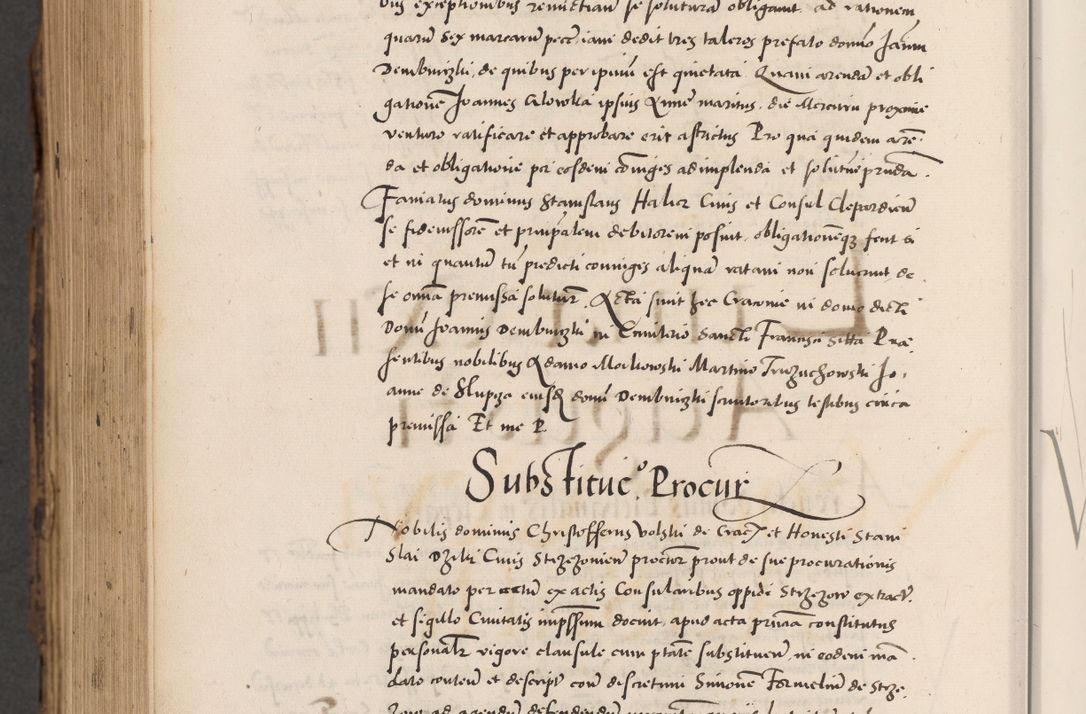 bus exceptionibus remotiam se soluturā obligarit ad rationem
quarū sex marcarū pecc, iam dedit tres taleros prefato domīo Joanni
Dembinizki, de quibus per ipsum est quietata Quam arendā et obli
gationē Joannes Glowka ipsius Anne maritus, die Mercurii proxime
venturo ratificare et approbare erit astrictus Pro qua quidem arē
da et obligatione per eosdem cōniuges adimplenda et solutione prmda.
Famatus dominus Stanislaus Halicz Civis et Consul Clepardien
se fideiussorē et principalem debitorem posuit, obligationemq fecit si
et in quantū tū predicti coniuges aliquā ratam non solverint, de
se omnā premissa soluturū. Acta sunt hec Cracovie in domo dicti
Domī Joannis Dembinizki in Cimiterio Sancti Francisci sitta Præ
sentibus nobilibus Adamo Morkowski Martino Trzuchowski Jo,
anne de Slupcza eiusd domī Dembinizki servitoribus testibus circa
premissa Et me P.
Substituc°. Procur
Nobilis dominus Christofferus Volski de Crac et Honesti Stani
Slai Dzeki Civis Strzezovien procτor prout de sue procurationis
mandato per actū ex actis Consularibus oppidi Strzezow extract.
et sigillo Civitatis impssum docuit, apud acta pricia constitutus
personalr vigore clausule cum ptate substituen, in eodem mā
dato conten et descript coro discretum Simonē Formelim de Strze.
zow ad agendū defendendū